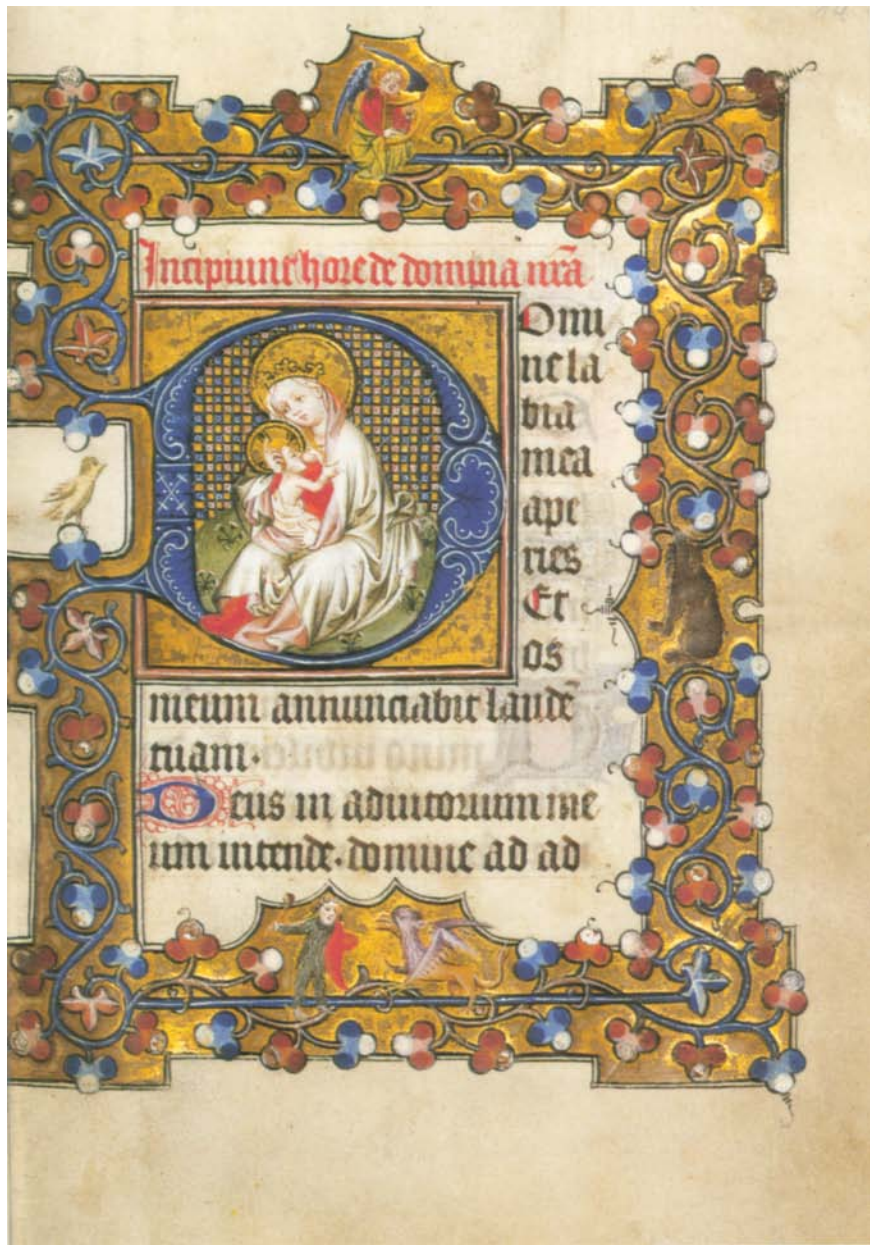 Incipiunt hore de domina nr̄a
DOmi
ne la
bia
mea
ape
ries
Et
os
meum annunciabit laudē
tuam.
Deus in adiutorium me
um intende. domine ad ad